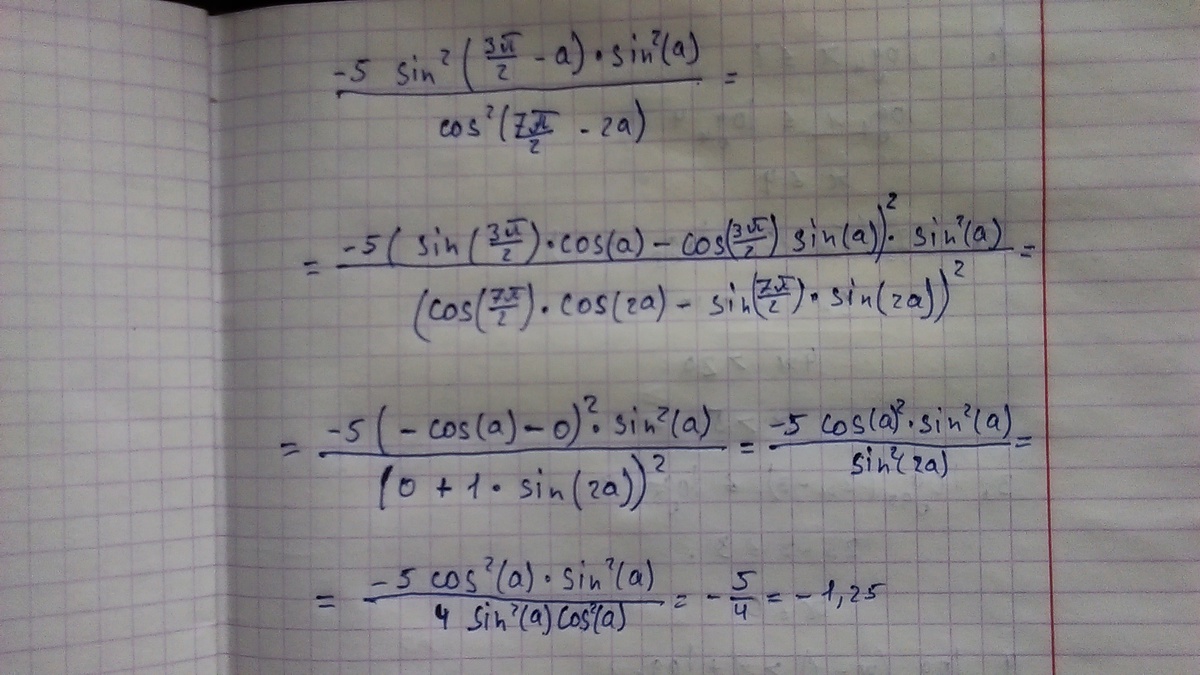 -5 sin²(3π/2 - a)·sin²(a) / cos²(7π/2 - 2a) =
= -5(sin(3π/2)·cos(a) - cos(3π/2) sin(a))²·sin²(a) / (cos(7π/2)·cos(2a) - sin(7π/2)·sin(2a))² =
= -5(-cos(a) - 0)²·sin²(a) / (0 + 1·sin(2a))² = -5 cos(a)²·sin²(a) / sin²(2a) =
= -5 cos²(a)·sin²(a) / 4 sin²(a) cos²(a) = -5/4 = -1,25